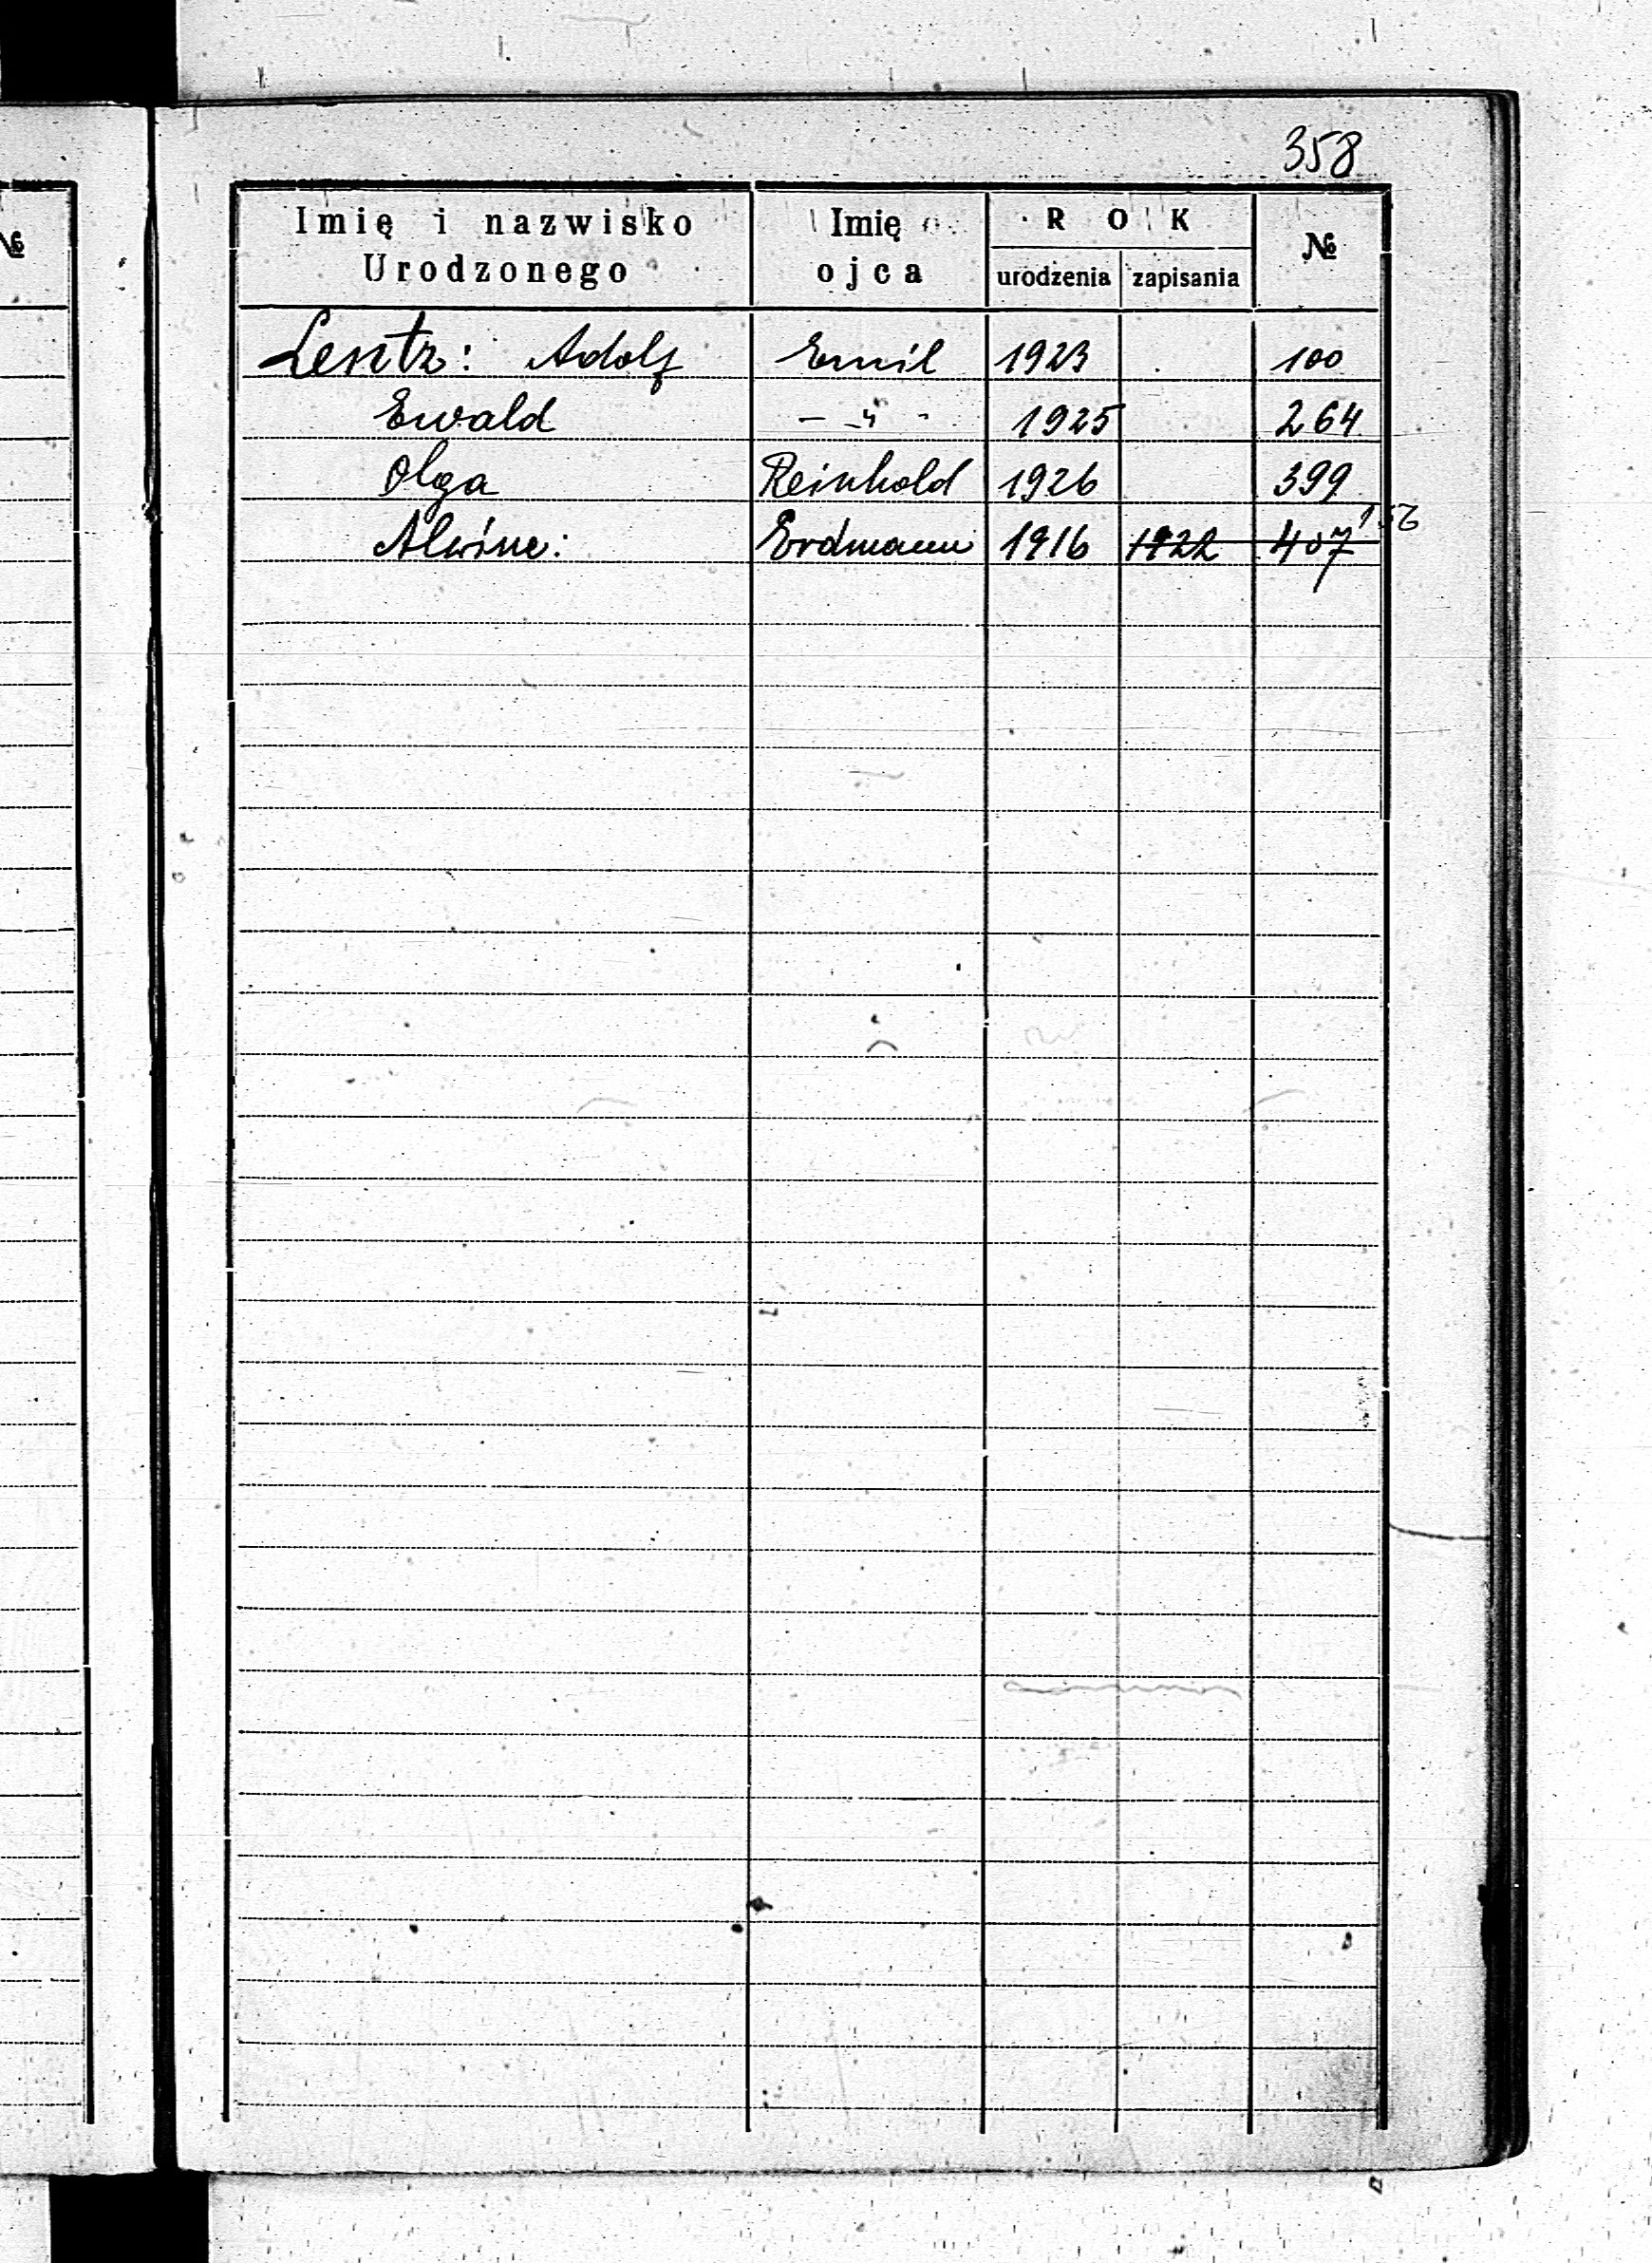 358
№
Imię i nazwisko Urodzonego
Imię ojca
ROK
urodzenia
zapisania
№
Lentz: Adolf Emil 1923 100
Ewald — " - 1925 264
Olga Reinhold 1926 399
Alwine: Erdmann 1916 1922 407 156